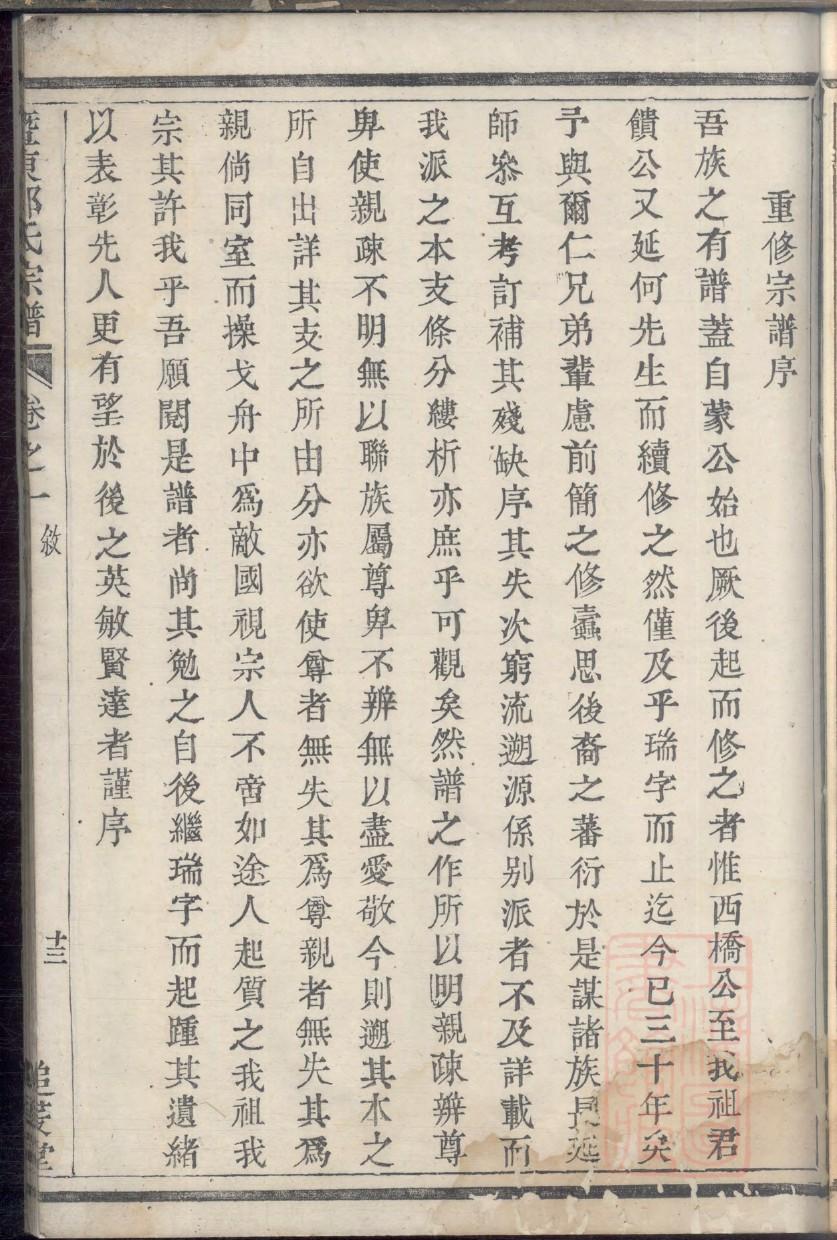 重修宗譜序
吾族之有譜蓋自蒙公始也厥後起而修之者惟西橋公至我祖君
饋公又延何先生而續修之然僅及乎瑞字而止迄今已三十年矣
予與爾仁兄弟輩慮前簡之修蠹思後裔之蕃衍於是謀諸族長延
師叅互考訂補其殘缺序其失次窮流遡源係別派者不及詳載而
我派之本支條分縷析亦庶乎可觀矣然譜之作所以明親疎辨尊
卑使親疎不明無以聯族屬尊卑不辨無以盡愛敬今則遡其本之
所自出詳其支之所由分亦欲使尊者無失其爲尊親者無失其爲
親倘同室而操戈舟中爲敵國視宗人不啻如途人起質之我祖我
宗其許我乎吾願閱是譜者尚其勉之自後繼瑞字而起踵其遺緒
以表彰先人更有望於後之英敏賢達者謹序
氏宗譜 卷之一 敘 十三